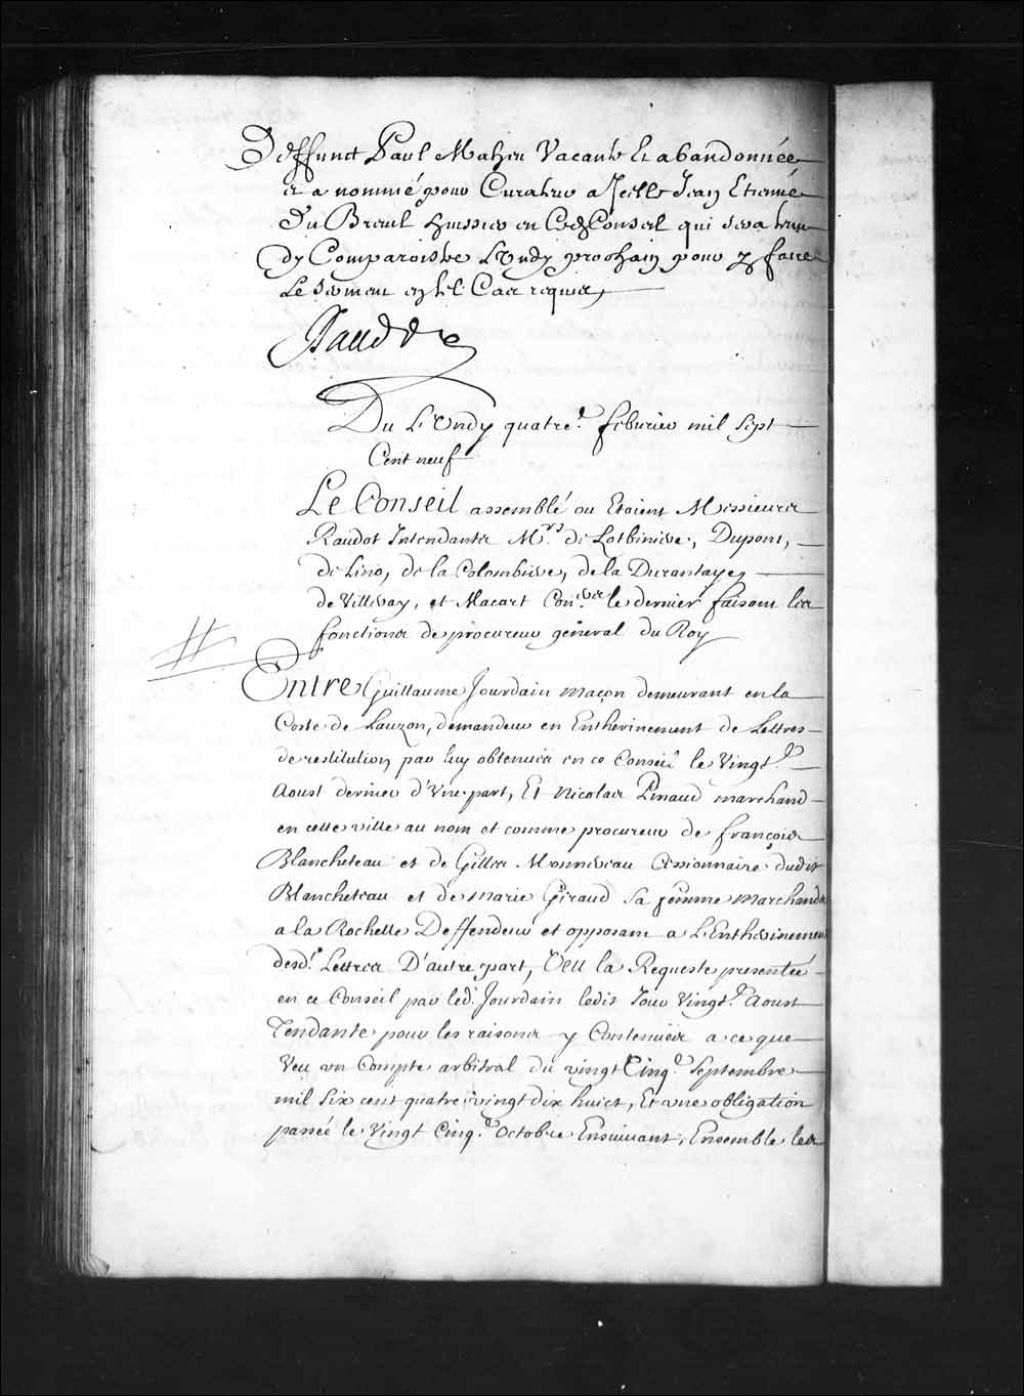 Deffunct Paul Maheu Vacante Et abandonnée
et a nommé pour Curateur a Jcelle Jean Etienne
Du Breuil huissier en Ced. Conseil qui sera tenu
Dy Comparoistre LUndy prochain pour y faire
Le serment en tel Cas requis,
Raudot
Du LUndy quatre.e feburier mil sept
Cent neuf
Le Conseil assemblé ou Etoient Messieurs
Raudot Intendants Mrs. de Lotbiniere, Dupont,
de Lino, de la Colombiere, de la Durantaye,
de Villeray, et Macart Con.ers le dernier faisant les
fonctions de procureur general du Roy
Entre Guillaume Jourdain maçon demeurant en la
Coste de Lauzon, demandeur en Entherinement de Lettres
de restitution par luy obtenües en ce Conseil le Vingt.e
Aoust dernier d'Vne part, Et Nicolas Pinaud marchand
en cette ville au nom et comme procureur de françois
Blancheteau et de Gilles Monnereau Cessionnaire dudit
Blancheteau et de Marie Giraud sa femme Marchands
a la Rochelle Deffendeur et opposant a L'Entherinement
desd. Lettres D'autre part, Veu la Requeste presentée
en ce Conseil par led. Jourdain ledit Jour Vingt.e Aoust
Tendante pour les raisons y Contenües a ce que
Veu un Compte arbitral du vingt Cinq.e Septembre
mil Six cent quatre vingt dix huict, Et une obligation
passée le Vingt Cinq.e Octobre Ensuivant, Ensemble les